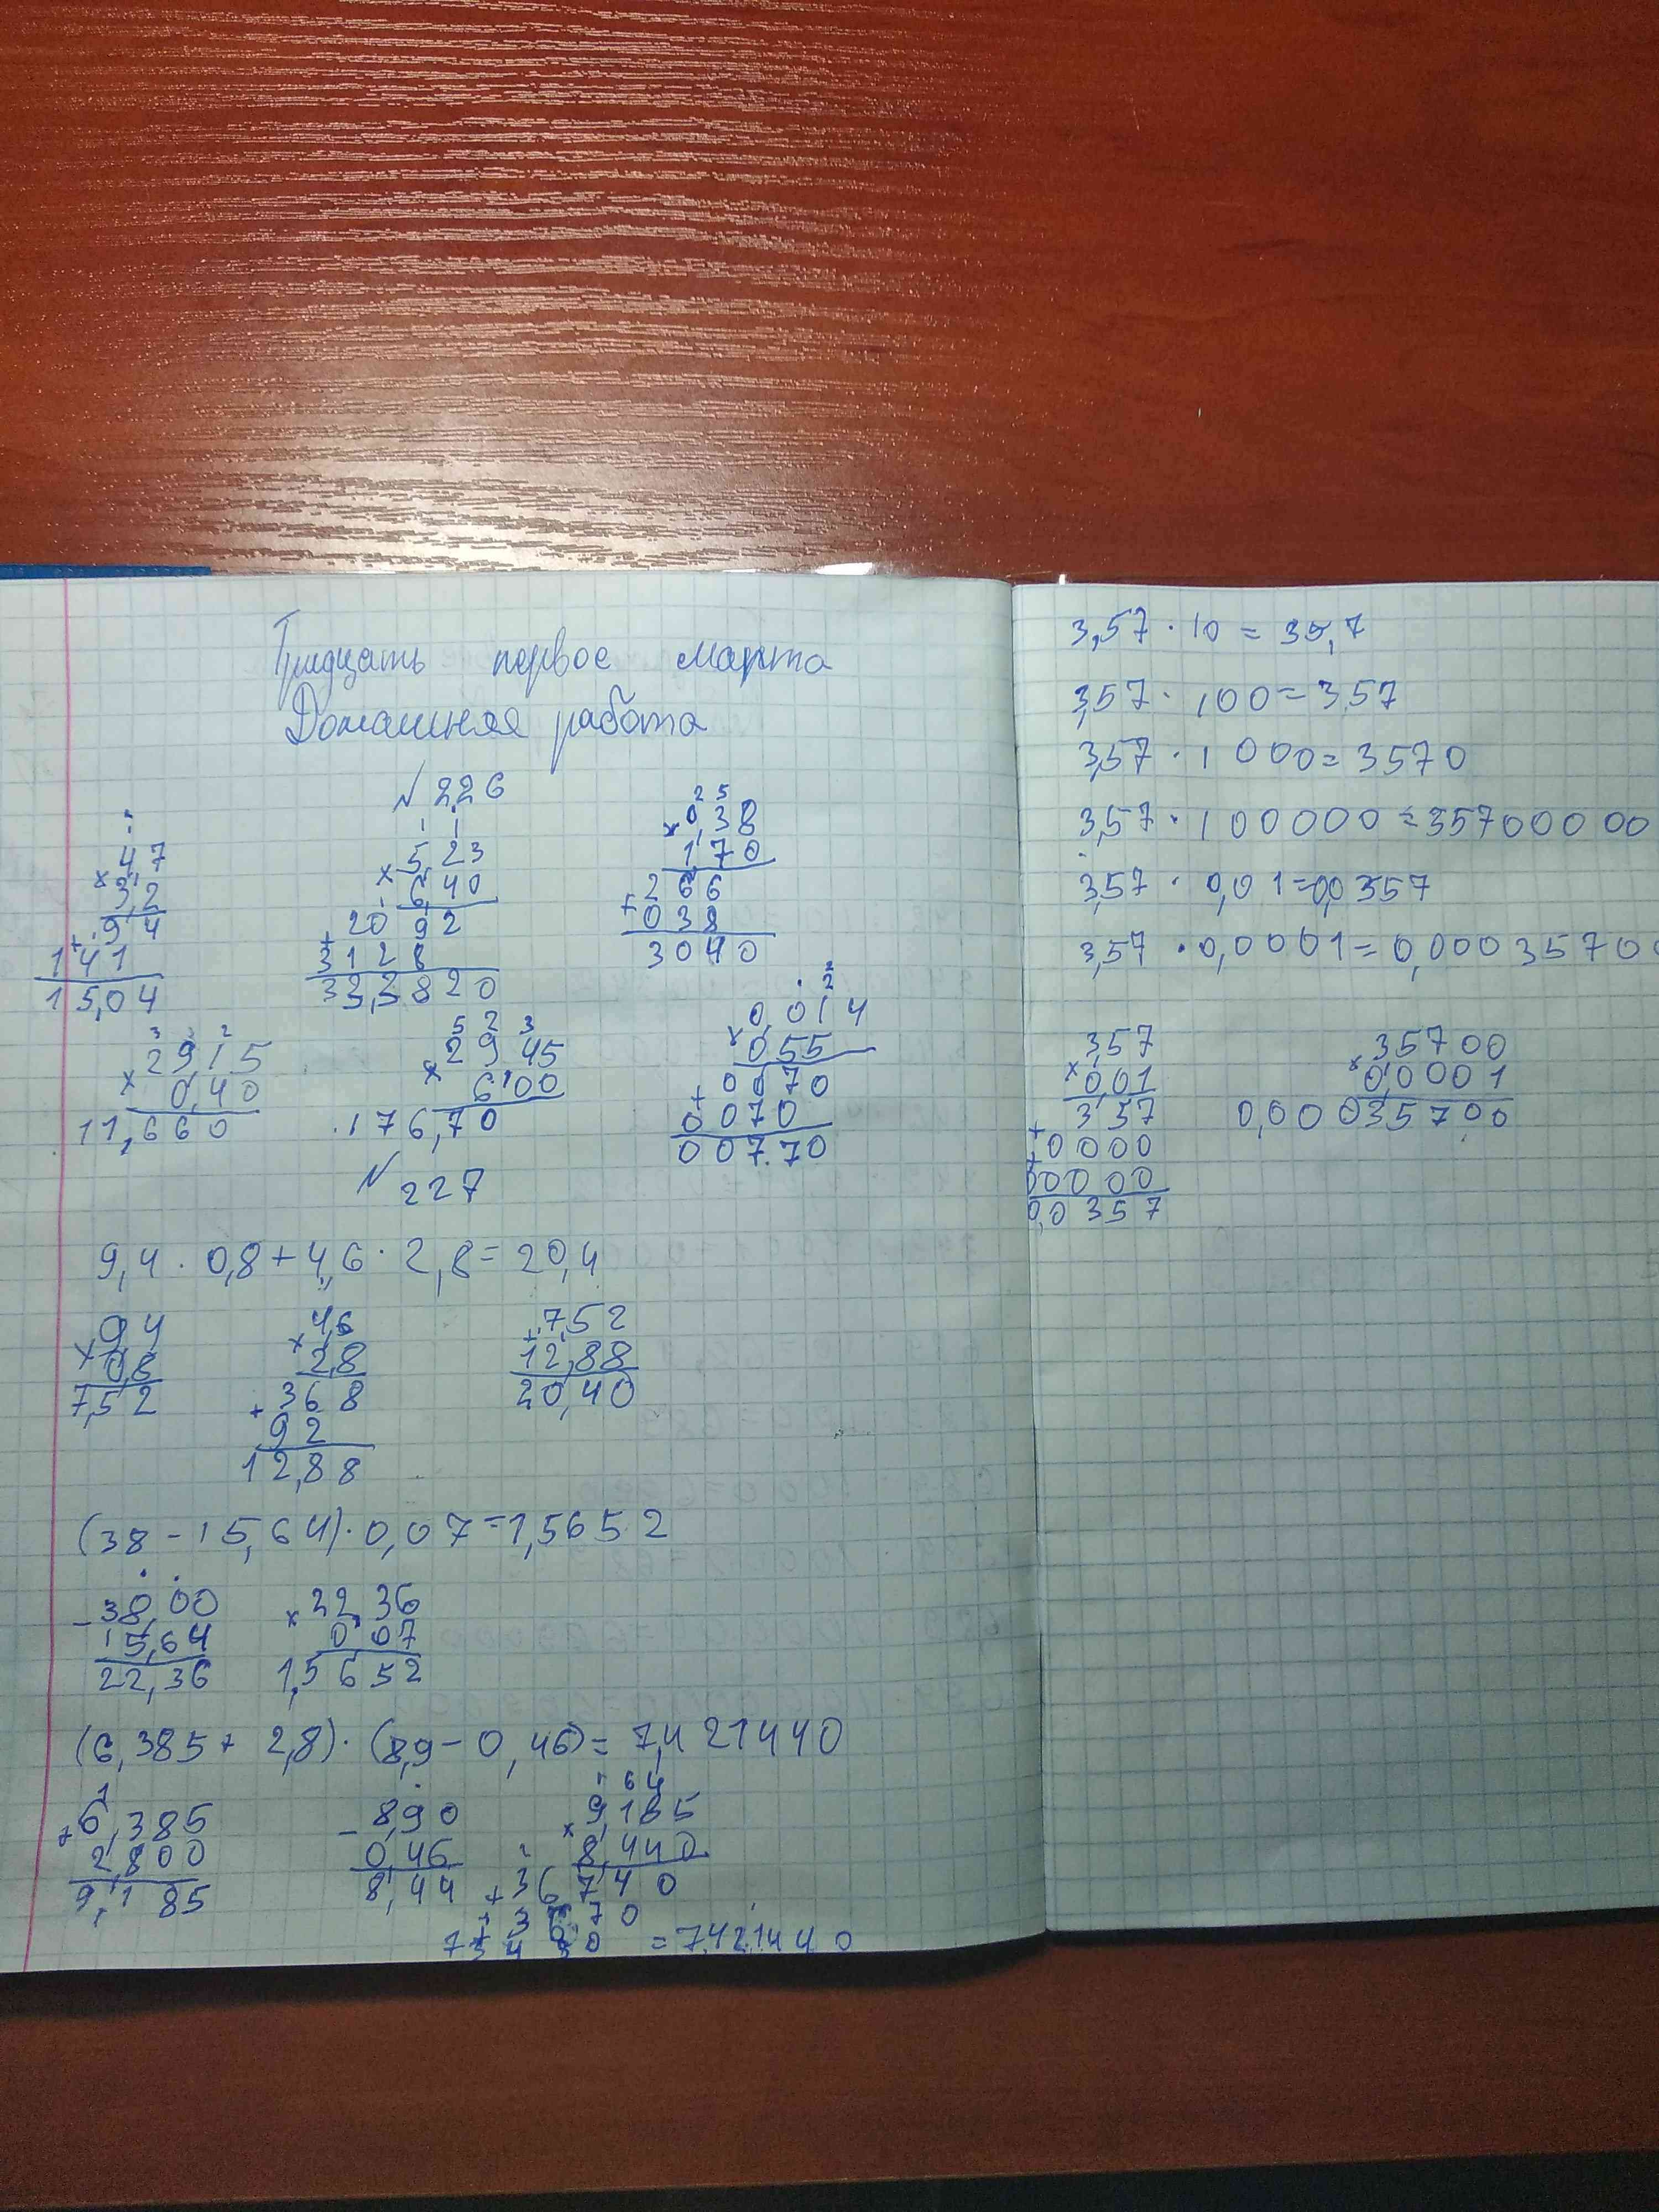 Тридцать первое марта
Домашняя работа
N 226
× 4,7
3,2
+ 94
141
15,04
× 5,23
6,40
+ 2092
3128
33,3820
2 5
× 0,38
1,70
+ 266
038
3040
3 2
× 29,15
0,40
11,660
5 2 3
× 29 45
6 00
176,70
2
× 0,014
0,55
+ 0070
0070
00770
N 227
9,4 · 0,8 + 4,6 · 2,8 = 20,4
× 9,4
0,8
7,52
× 4,6
2,8
+ 368
92
12,88
+ 7,52
12,88
20,40
(38 - 15,64) · 0,07 = 1,5652
- 38,00
15,64
22,36
× 22,36
0,07
1,5652
(6,385 + 2,8) · (8,9 - 0,46) = 7,421440
1
+ 6,385
2,800
9,185
- 8,90
0,46
8,44
64
× 9,185
8,440
+ 36740
36 70
= 7421440
3,57 · 10 = 35,7
3,57 · 100 = 3,57
3,57 · 1000 = 3570
3,57 · 100000 = 35700000
3,57 · 0,01 = 0,0357
3,57 · 0,0001 = 0,0003570
× 3,57
0,01
357
+ 0000
+ 00000
0,0357
× 3,5700
0,0001
0,00035700